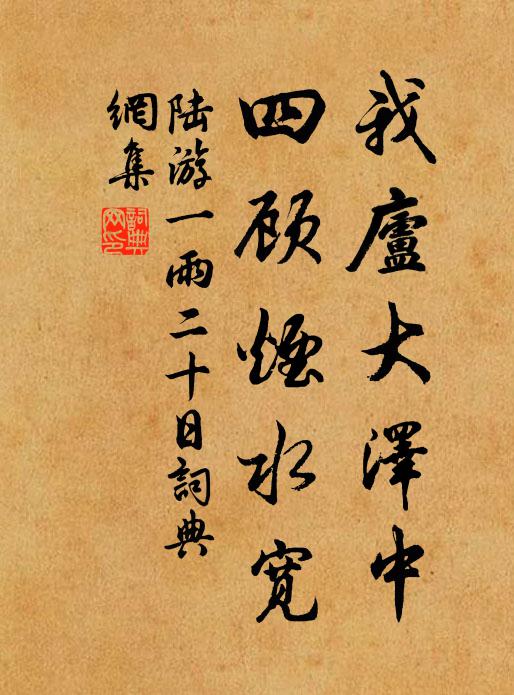 我廬大澤中
四顾煙水寬
陆游一雨二十日詞典
網集
詞典
网印